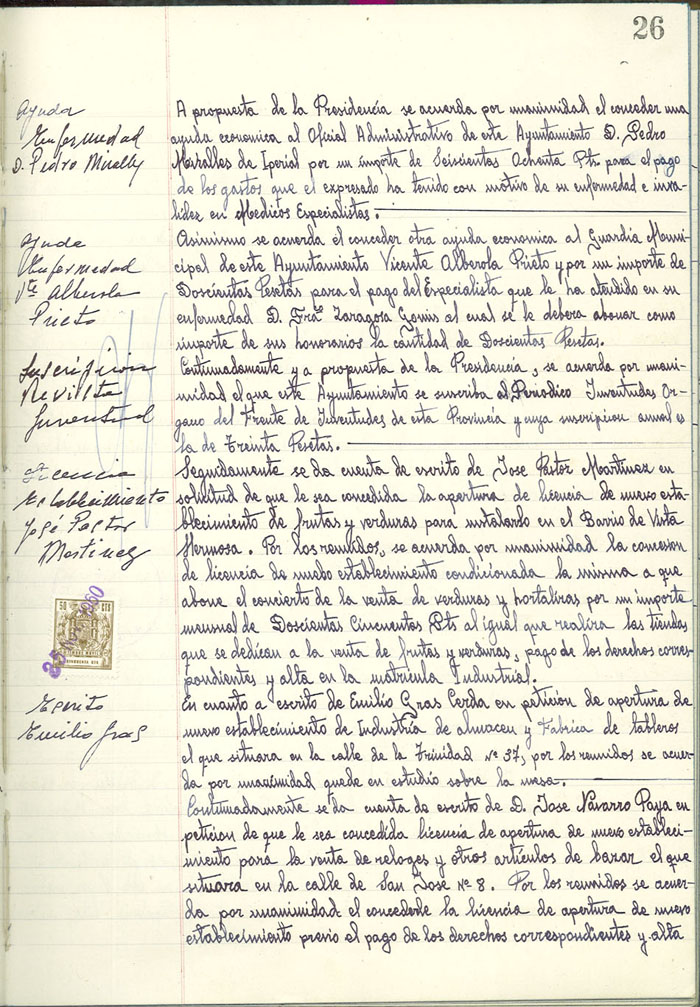 26
Ayuda
Enfermedad
D. Pedro Miralles
A propuesta de la Presidencia se acuerda por unanimidad el conceder una
ayuda economica al Oficial Administrativo de este Ayuntamiento D. Pedro
Miralles de Iperial por un importe de Seiscientas Ochenta Pts. para el pago
de los gastos que el expresado ha tenido con motivo de su enfermedad e inva-
lidez en Medicos Especialistas.
Ayuda
Enfermedad
Vte Alberola
Prieto
Asimismo se acuerda el conceder otra ayuda economica al Guardia Muni-
cipal de este Ayuntamiento Vicente Alberola Prieto y por un importe de
Doscientas Pesetas para el pago del Especialista que le ha atendido en su
enfermedad D. Frco Zaragoza Gomis al cual se le debera abonar como
importe de sus honorarios la cantidad de Doscientas Pesetas.
Suscripción
Revista
Juventud
Continuadamente y a propuesta de la Presidencia, se acuerda por unani-
midad el que este Ayuntamiento se suscriba al Periodico Juventudes Or-
gano del Frente de Juventudes de esta Provincia y cuya suscripcion anual es
la de Treinta Pesetas.
Licencia
Establecimiento
José Pastor
Martinez
Seguidamente se da cuenta de escrito de Jose Pastor Martinez en
solicitud de que le sea concedida la apertura de licencia de nuevo esta-
blecimiento de frutas y verduras para instalarlo en el Barrio de Vista
Hermosa. Por los reunidos, se acuerda por unanimidad la concesion
de licencia de nuebo establecimiento condicionada la misma a que
abone el concierto de la venta de verduras y hortalizas por un importe
mensual de Doscientas Cincuentas Pts al igual que realiza las tiendas
que se dedican a la venta de frutas y verduras, pago de los derechos corres-
pondientes y alta en la matricula Industrial.
50 CTS
1960
Escrito
Emilio Gras
En cuanto a escrito de Emilio Gras Cerda en peticion de apertura de
nuevo establecimiento de Industria de almacen y Fabrica de tableros
el que situara en la calle de la Trinidad Nº 37, por los reunidos se acuer-
da por unanimidad quede en estudio sobre la mesa.
Continuadamente se da cuenta de escrito de D. Jose Navarro Paya en
peticion de que le sea concedida licencia de apertura de nuevo estableci-
miento para la venta de relojes y otros artículos de bazar el que
situara en la calle de San Jose Nº 8. Por los reunidos se acuer-
da por unanimidad el concederle la licencia de apertura de nuevo
establecimiento previo el pago de los derechos correspondientes y alta